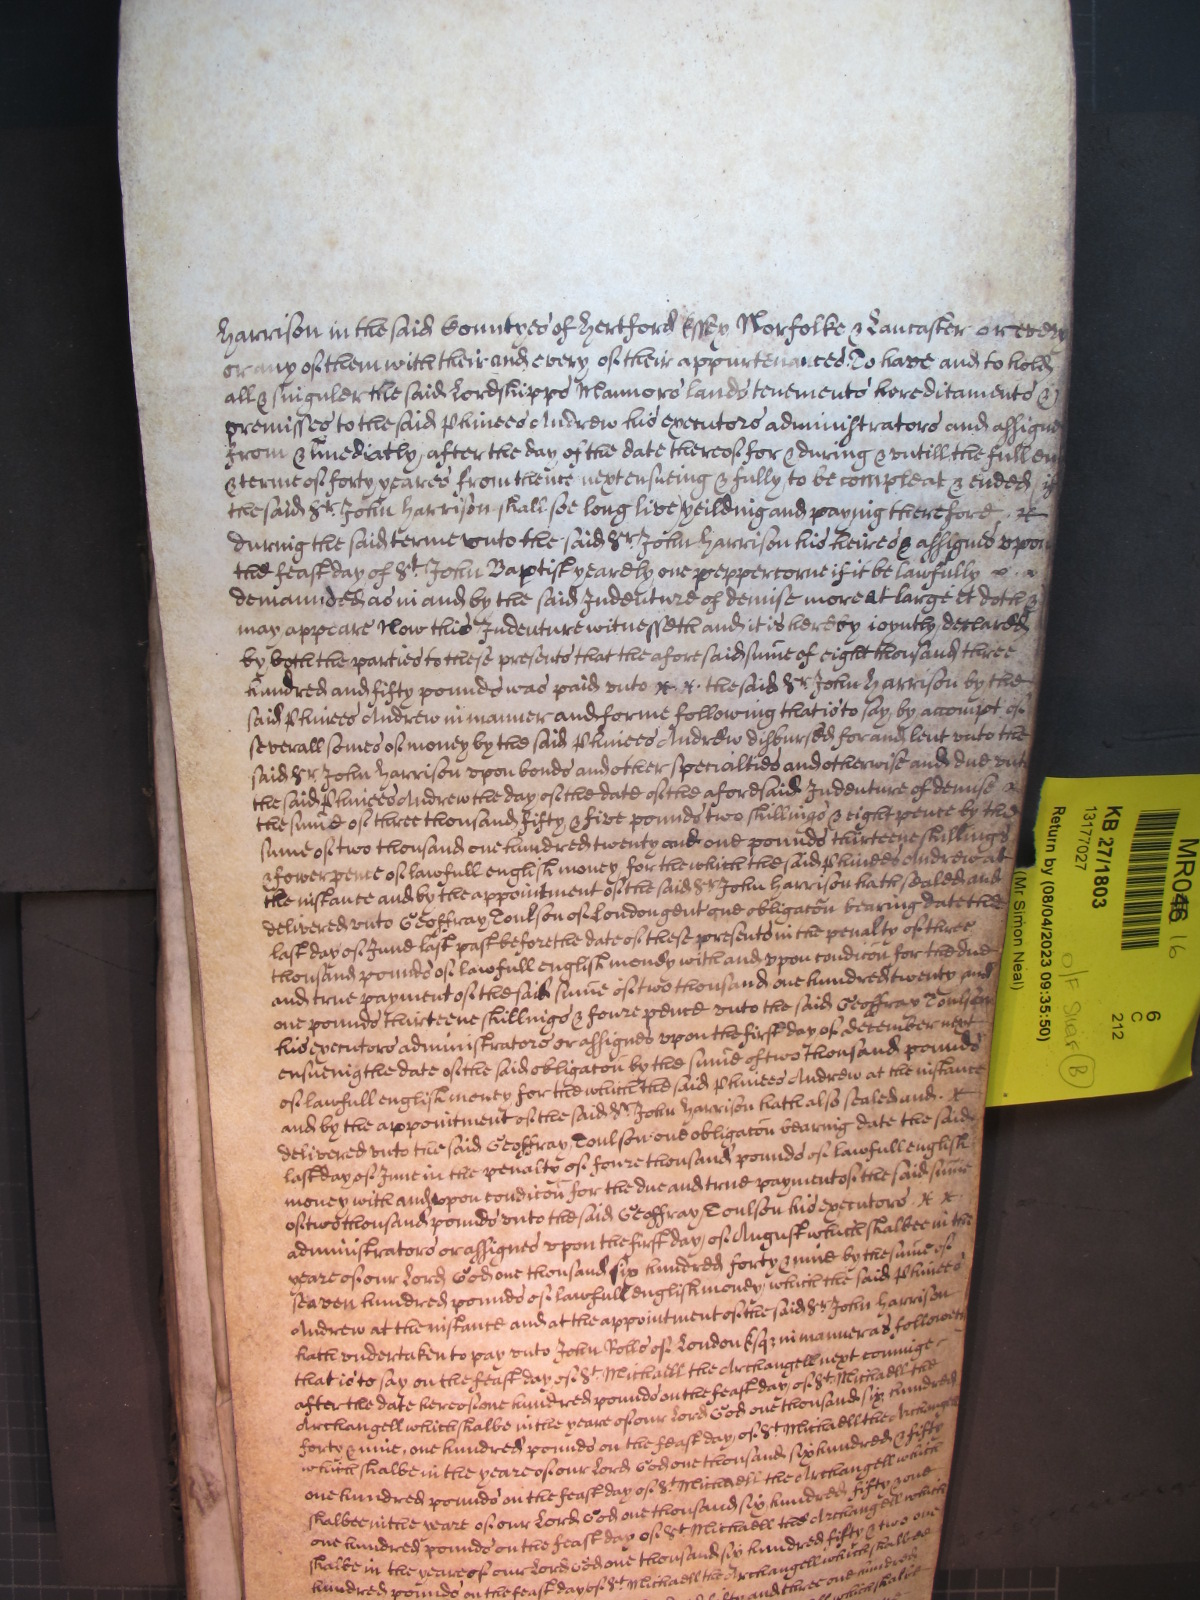 Harrison in the said Countyes of Hertford Essex Norfolke & Lancaster or every
or any of them with their and every of their appurtenances To have and to hold
all & singuler the said Lordshipps Mannors lands tenements hereditaments &
premisses to the said Phinees Andrew his executors administrators and assignes
from & imediatly after the day of the date thereof for & during & untill the full end
& terme of forty yeares from thence next ensueing & fully to be compleat & ended if
the said Sr. John Harrison shall soe long live yeilding and paying therefore
during the said terme unto the said Sr. John Harrison his heires & assignes upon
the feast day of St. John Baptist yearely one peppercorne if it be lawfully
demannded as in and by the said Indenture of demise more at large it doth &
may appeare Now this Indenture witnesseth and it is hereby ioyntly declared
by both the parties to these presents that the aforesaid sume of eight thousand three
hundred and fifty pounds was paid unto the said Sr. John Harrison by the
said Phinees Andrew in manner and forme following that is to say, by accompt of
severall somes of money by the said Phinees Andrew disbursed for and lent unto the
said Sr. John Harrison upon bonds and other specialties and otherwise and due unto
the said Phinees Andrew the day of the date of the aforesaid Indenture of demise
the sume of three thousand fifty & five pounds two shillings & eight pence by the
sume of two thousand one hundred twenty and one pounds thirteene shillings
& fower pence of lawfull english money for the which the said Phinees Andrew at
the instance and by the appointment of the said Sr. John Harrison hath sealed and
delivered unto Geoffray Toulson of London gent one obligacon bearing date the
last day of June last past before the date of these presents in the penalty of three
thousand pounds of lawfull english money with and upon condicon for the due
and true payment of the said sume of two thousand one hundred twenty and
one pounds thirteene shillings & foure pence unto the said Geoffray Toulson
his executors administrators or assignes upon the first day of december next
ensueing the date of the said obligacon by the sume of two thousand pounds
of lawfull english money for the which the said Phinees Andrew at the instance
and by the appointment of the said Sr. John Harrison hath also sealed and
delivered unto the said Geoffray Toulson one obligacon bearing date the said
last day of June in the penalty of foure thousand pounds of lawfull english
money with and upon condicon for the due and true payment of the said sume
of two thousand pounds unto the said Geoffray Toulson his executors
administrators or assignes upon the first day of August which shalbee in the
yeare of our Lord God one thousand six hundred forty & nine by the sume of
seaven hundred pounds of lawfull english money which the said Phinees
Andrew at the instance and at the appointment of the said Sr John Harrison
hath undertaken to pay unto John Rolls of London Esqr in manner as followeth
that is to say on the feast day of St. Michaell the Archangell next cominge
after the date hereof one hundred pounds on the feast day of St. Michaell the
Archangell which shalbe in the yeare of our Lord God one thousand six hundred
forty & nine, one hundred pounds on the feast day of St Michaell the Archangell
which shalbe in the yeare of our Lord God one thousand six hundred & fifty
one hundred pounds on the feast day of St Michaell the Archangell which
shalbee in the yeare of our Lord God one thousand six hundred fifty & one
one hundred pounds on the feast day of St Michaell the Archangell which
shalbe in the yeare of our Lord God one thousand six hundred fifty & two one
hundred pounds on the feast day of St Michaell the Archangell which shalbee
fifty and three one hundred
MR046 16
6
C
212
KB 27/1803
13177027
Return by (08/04/2023 09:35:50)
(Mr Simon Neal)
O/F
B